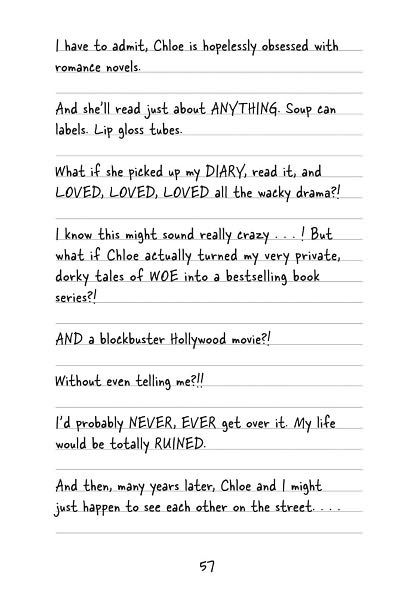 I have to admit, Chloe is hopelessly obsessed with
romance novels.
And she'll read just about ANYTHING. Soup can
labels. Lip gloss tubes.
What if she picked up my DIARY, read it, and
LOVED, LOVED, LOVED all the wacky drama?!
I know this might sound really crazy . . . ! But
what if Chloe actually turned my very private,
dorky tales of WOE into a bestselling book
series?!
AND a blockbuster Hollywood movie?!
Without even telling me?!!
I'd probably NEVER, EVER get over it. My life
would be totally RUINED.
And then, many years later, Chloe and I might
just happen to see each other on the street. . . .
57